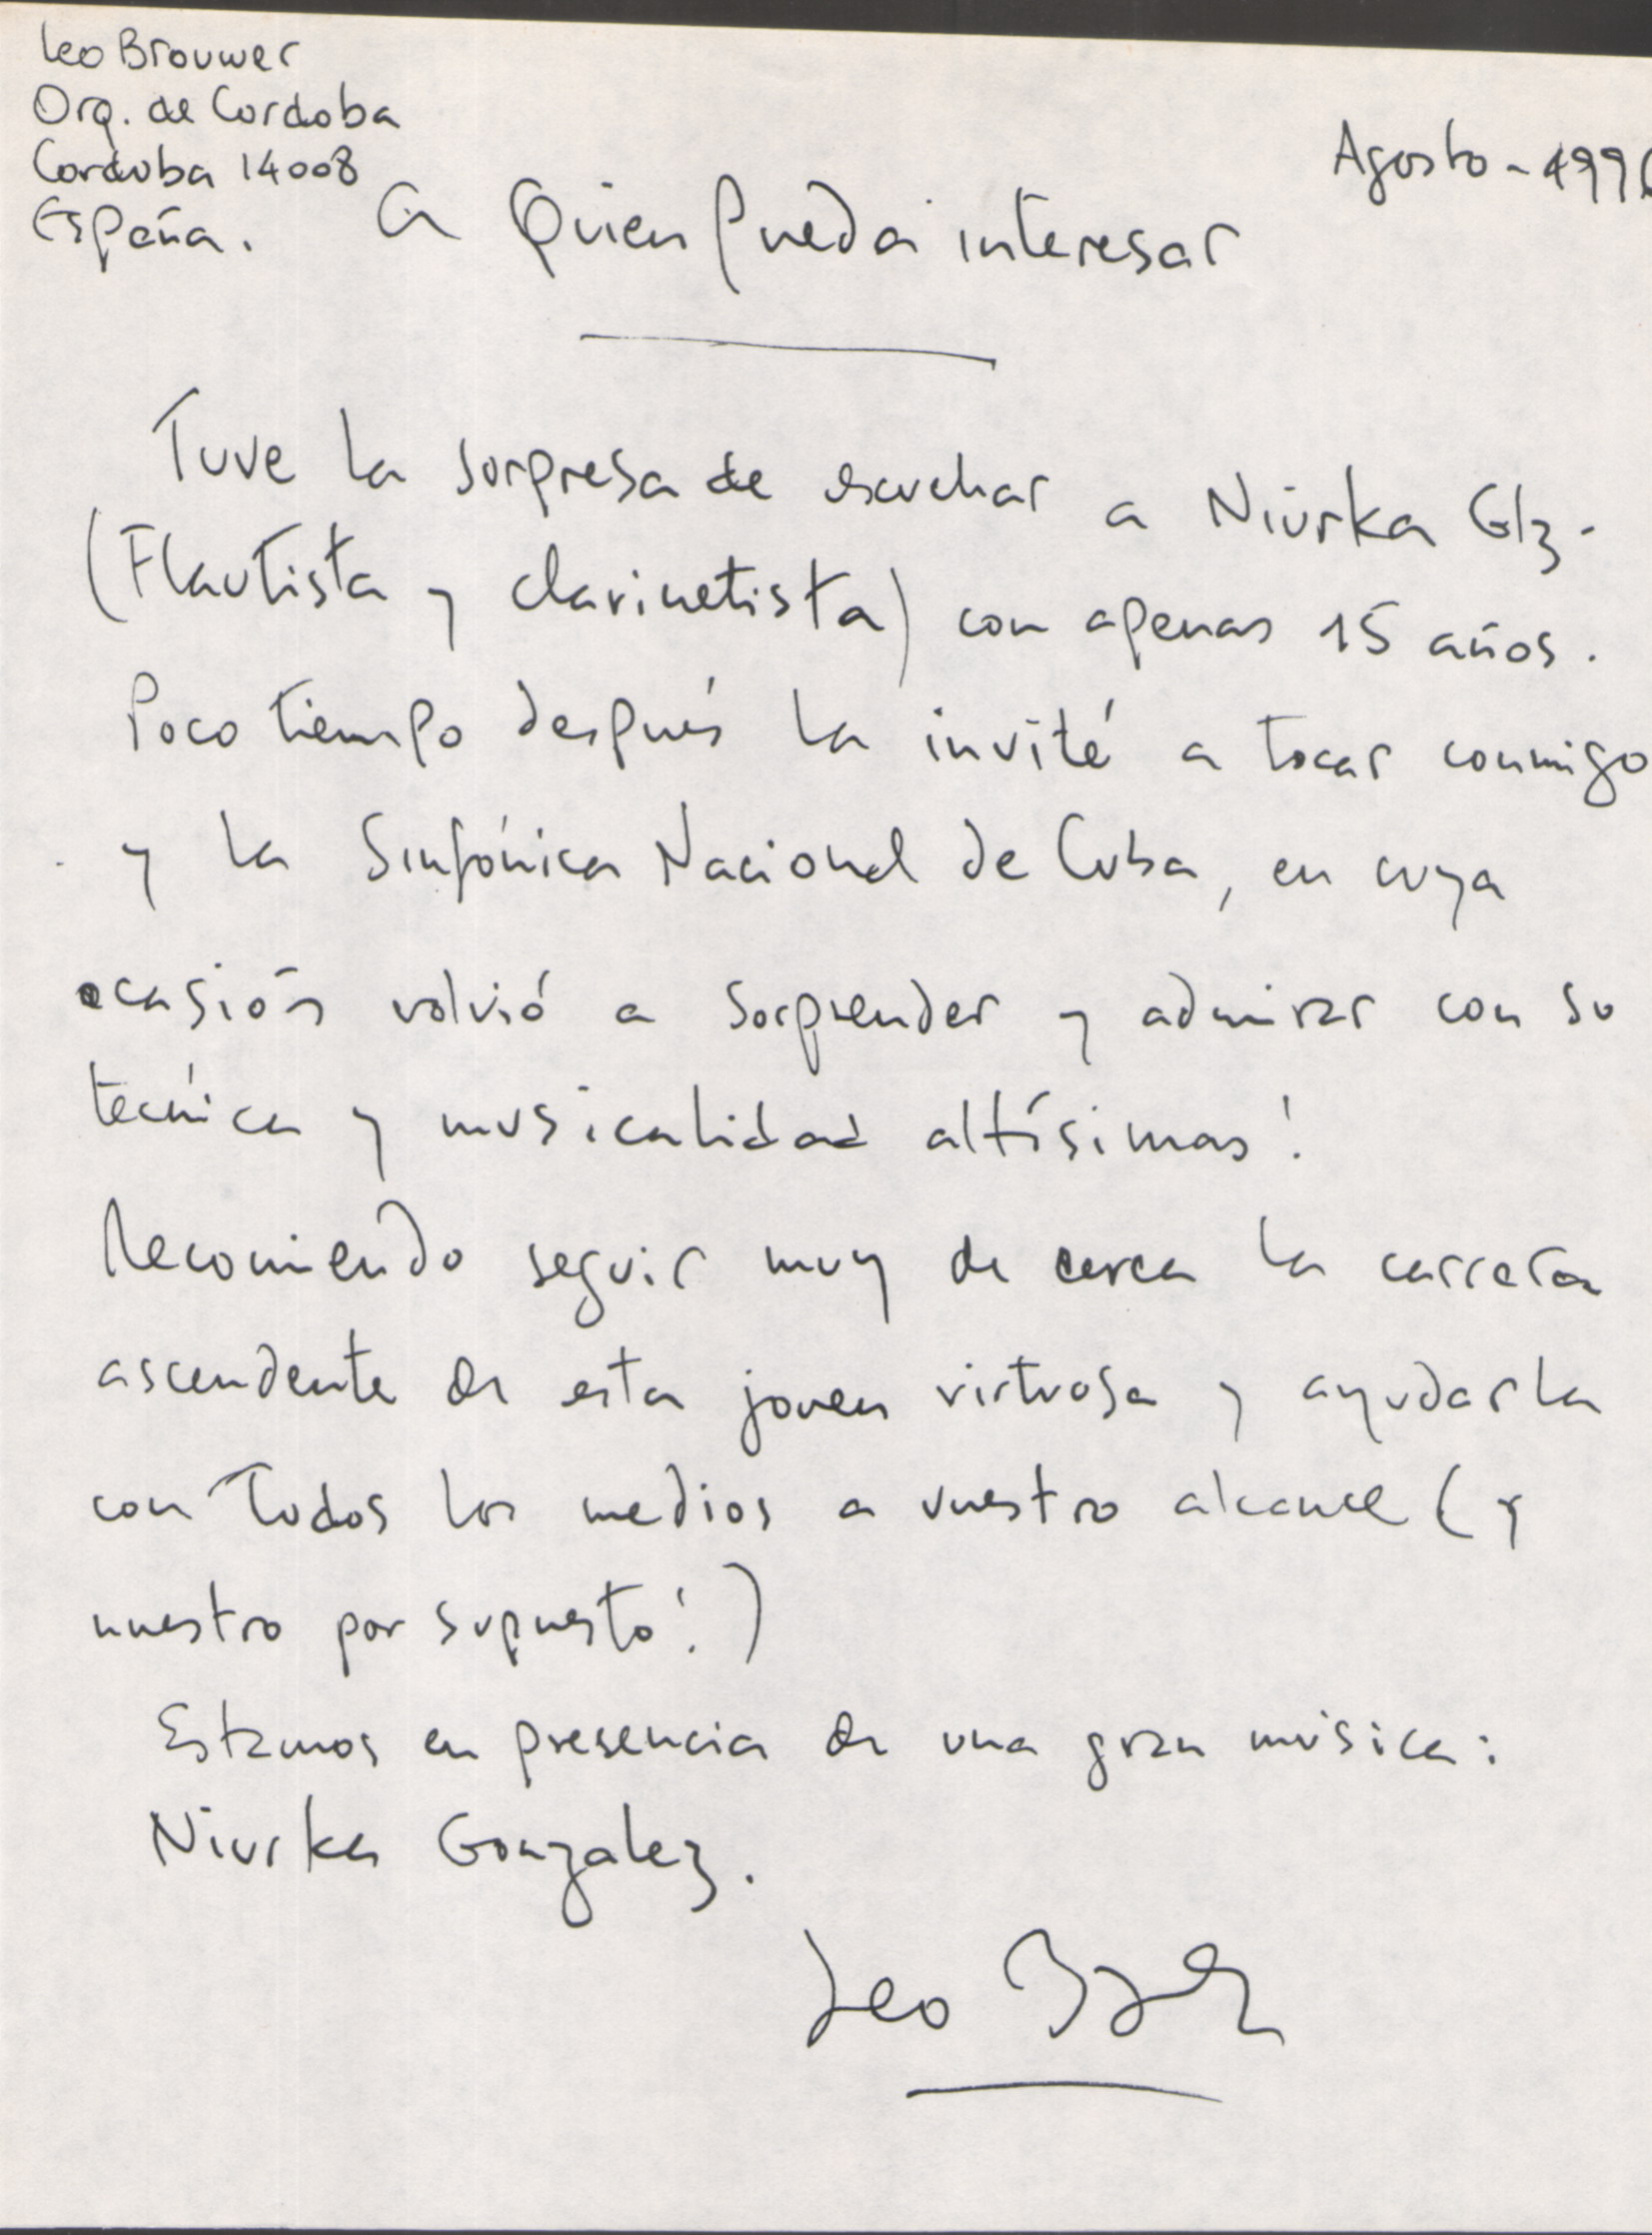 Leo Brouwer
Orq. de Cordoba
Cordoba 14008
España.
Agosto - 199
A Quien Pueda interesar
Tuve la sorpresa de escuchar a Niurka Glz.
(Flautista y clarinetista) con apenas 15 años.
Poco tiempo después la invité a tocar conmigo
y la Sinfónica Nacional de Cuba, en cuya
ocasión volvió a sorprender y admirar con su
tecnica y musicalidad altísimas!
Recomiendo seguir muy de cerca la carrera
ascendente de esta joven virtuosa y ayudarla
con Todos los medios a vuestro alcance (y
nuestro por supuesto!)
Estamos en presencia de una gran música:
Niurka Gonzalez.
Leo